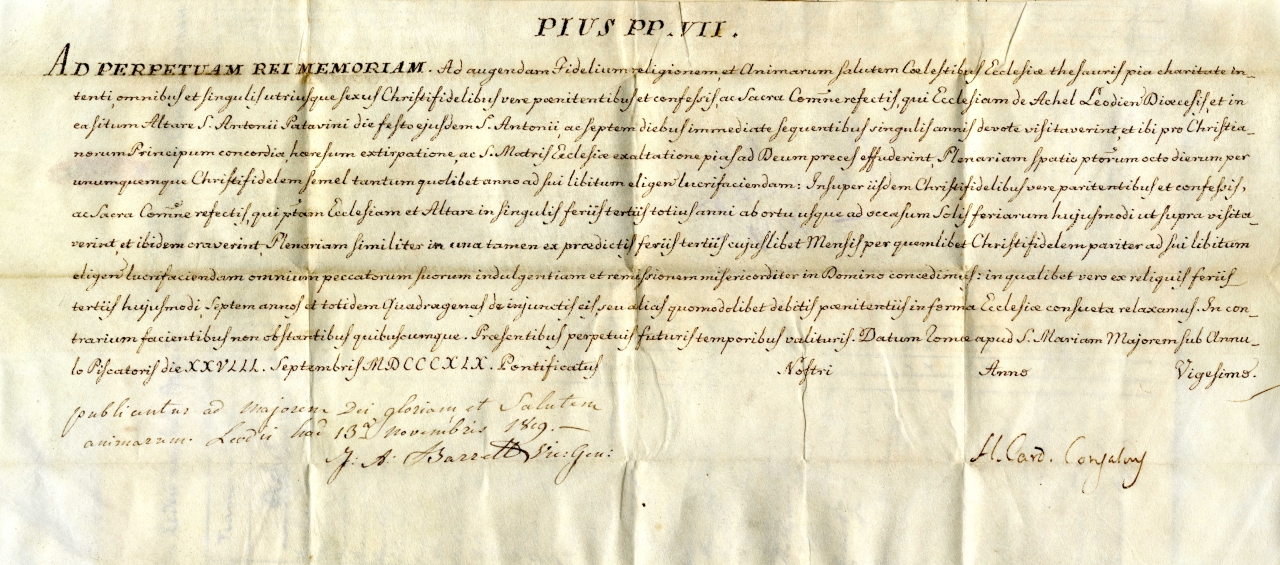 PIUS PP. VII.
AD PERPETUAM REI MEMORIAM. Ad augendam Fidelium religionem, et Animarum salutem Cœlestibus Ecclesiæ thesauris pia charitate in-
tenti omnibus et singulis utriusque sexus Christifidelibus vere pœnitentibus et confessis, ac Sacra Com̃ne refectis, qui Ecclesiam de Achel Leodien Diœcesis, et in
ea situm Altare S. Antonii Patavini die festo ejusdem S. Antonii ac septem diebus immediate sequentibus singulis annis devote visitaverint et ibi pro Christia-
norum Principum concordia hæresum extirpatione, ac S. Matris Ecclesiæ exaltatione pias ad Deum preces effuderint, Plenariam spatio ptorum octo dierum per
unumquemque Christifidelem semel tantum quolibet anno ad sui libitum eligen lucrifaciendam: Insuper iisdem Christifidelibus vere pœnitentibus et confessis,
ac Sacra Com̃ne refectis, qui ptam Ecclesiam et Altare in singulis feriis tertiis totius anni ab ortu usque ad occasum Solis feriarum hujusmodi ut supra visita-
verint et ibidem oraverint, Plenariam similiter in una tamen ex prædictis feriis tertiis cujuslibet Mensis per quemlibet Christifidelem pariter ad sui libitum
eligen lucrifaciendam omnium peccatorum suorum indulgentiam et remissionem misericorditer in Domino concedimus: in qualibet vero ex reliquis feriis
tertiis hujusmodi Septem annos et totidem Quadragenas de injunctis eis seu alias quomodolibet debitis pœnitentiis in forma Ecclesiæ consueta relaxamus. In con-
trarium facientibus non obstantibus quibuscumque. Præsentibus perpetuis futuris temporibus valituris. Datum Romæ apud S. Mariam Majorem sub Annu-
lo Piscatoris die XXVIII. Septembris MDCCCXIX. Pontificatus Nostri Anno Vigesimo.
publicentur ad majorem Dei gloriam et Salutem
animarum. Leodii hac 13a novembris 1819.—
J: A: Barrett Vic: Gen:
H. Card. Consalvus